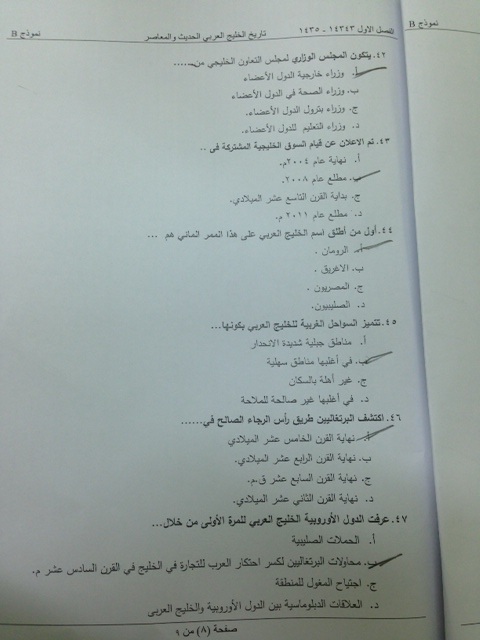 نموذج B
الفصل الاول ١٤٣٤٣ - ١٤٣٥
تاريخ الخليج العربي الحديث والمعاصر
نموذج B
٤٢. يتكون المجلس الوزاري لمجلس التعاون الخليجي من......
أ. وزراء خارجية الدول الأعضاء
ب. وزراء الصحة في الدول الأعضاء
ج. وزراء بترول الدول الأعضاء.
د. وزراء التعليم للدول الأعضاء.
٤٣. تم الاعلان عن قيام السوق الخليجية المشتركة في ..
أ. نهاية عام ٢٠٠٤م.
ب. مطلع عام ٢٠٠٨.
ج. بداية القرن التاسع عشر الميلادي.
د. مطلع عام ٢٠١١ م.
٤٤. أول من أطلق اسم الخليج العربي على هذا الممر المائي هم ...
أ. الرومان .
ب. الاغريق .
ج. المصريون .
د. الصليبيون.
٤٥. تتميز السواحل الغربية للخليج العربي بكونها...
أ. مناطق جبلية شديدة الانحدار
ب. في أغلبها مناطق سهلية
ج. غير أهلة بالسكان
د. في أغلبها غير صالحة للملاحة
٤٦. اكتشف البرتغاليين طريق رأس الرجاء الصالح في......
أ. نهاية القرن الخامس عشر الميلادي
ب. نهاية القرن الرابع عشر الميلادي.
ج. نهاية القرن السابع عشر ق.م.
د. نهاية القرن الثاني عشر الميلادي.
٤٧. عرفت الدول الأوروبية الخليج العربي للمرة الأولى من خلال...
أ. الحملات الصليبية
ب. محاولات البرتغاليين لكسر احتكار العرب للتجارة في الخليج في القرن السادس عشر م.
ج. اجتياح المغول للمنطقة
د. العلاقات الدبلوماسية بين الدول الأوروبية والخليج العربي
صفحة (٨) من ٩